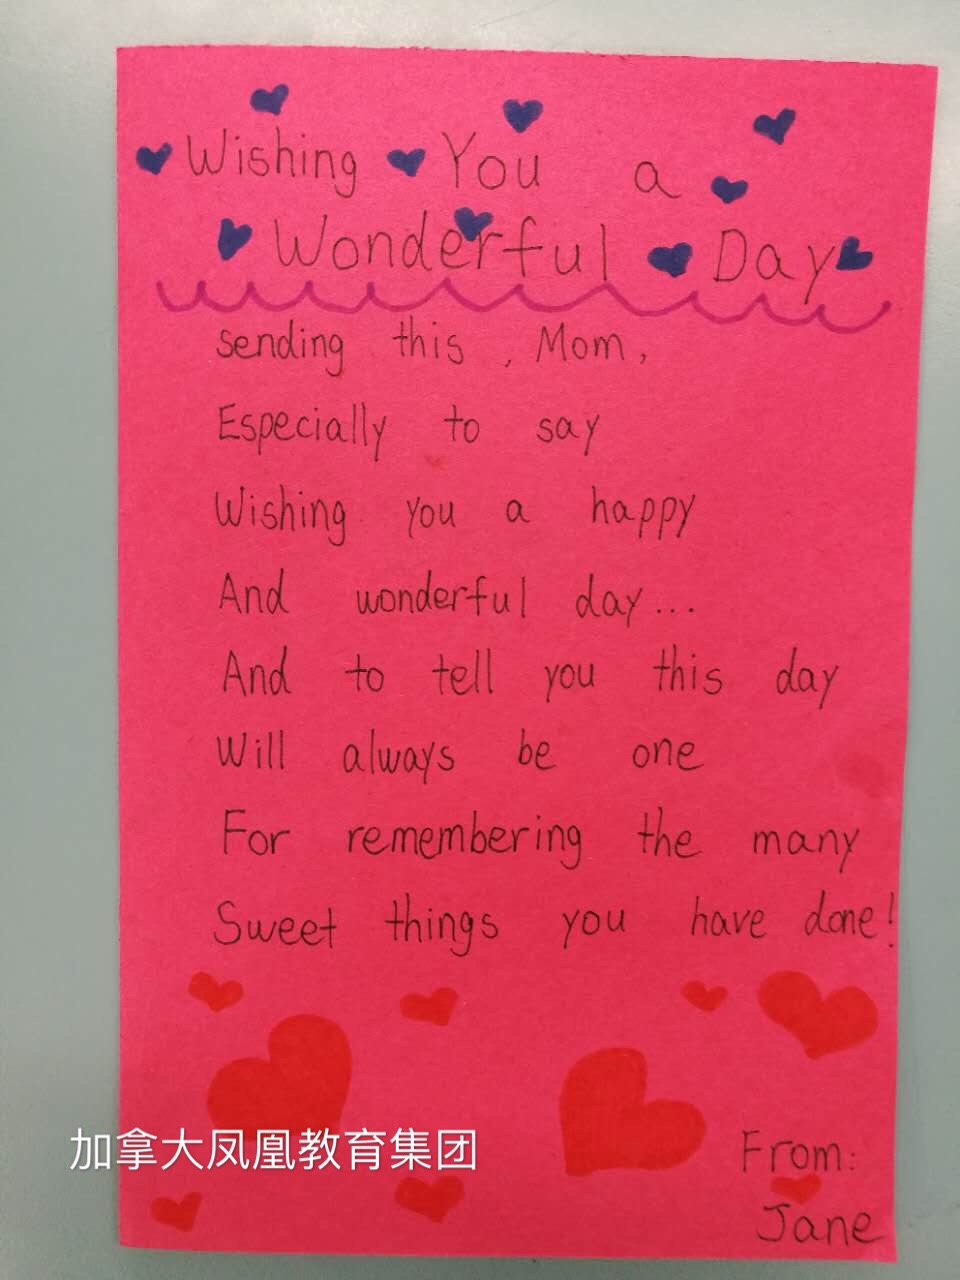 Wishing You a
Wonderful Day
sending this , Mom,
Especially to say
Wishing you a happy
And wonderful day...
And to tell you this day
Will always be one
For remembering the many
Sweet things you have done!
加拿大凤凰教育集团
From:
Jane